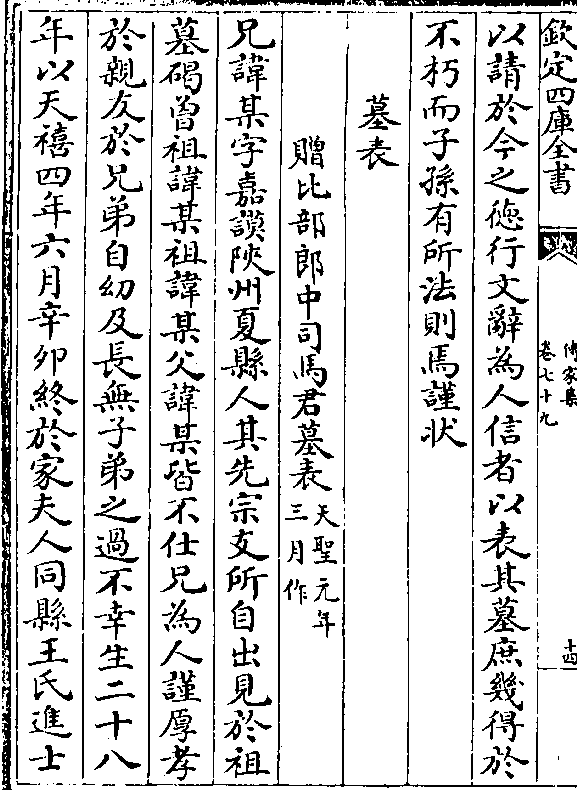 欽定四庫全書
傳家集
卷七十九
十四
以請於今之徳行文辭為人信者以表其墓庶幾得於
不朽而子孫有所法則焉謹狀
墓表
贈比部郎中司馬君墓表天聖元年
三月作
兄諱某字嘉謨陜州夏縣人其先宗支所自出見於祖
墓碣曽祖諱某祖諱某父諱某皆不仕兄為人謹厚孝
於親友於兄弟自幼及長無子弟之過不幸生二十八
年以天禧四年六月辛卯終於家夫人同縣王氏進士